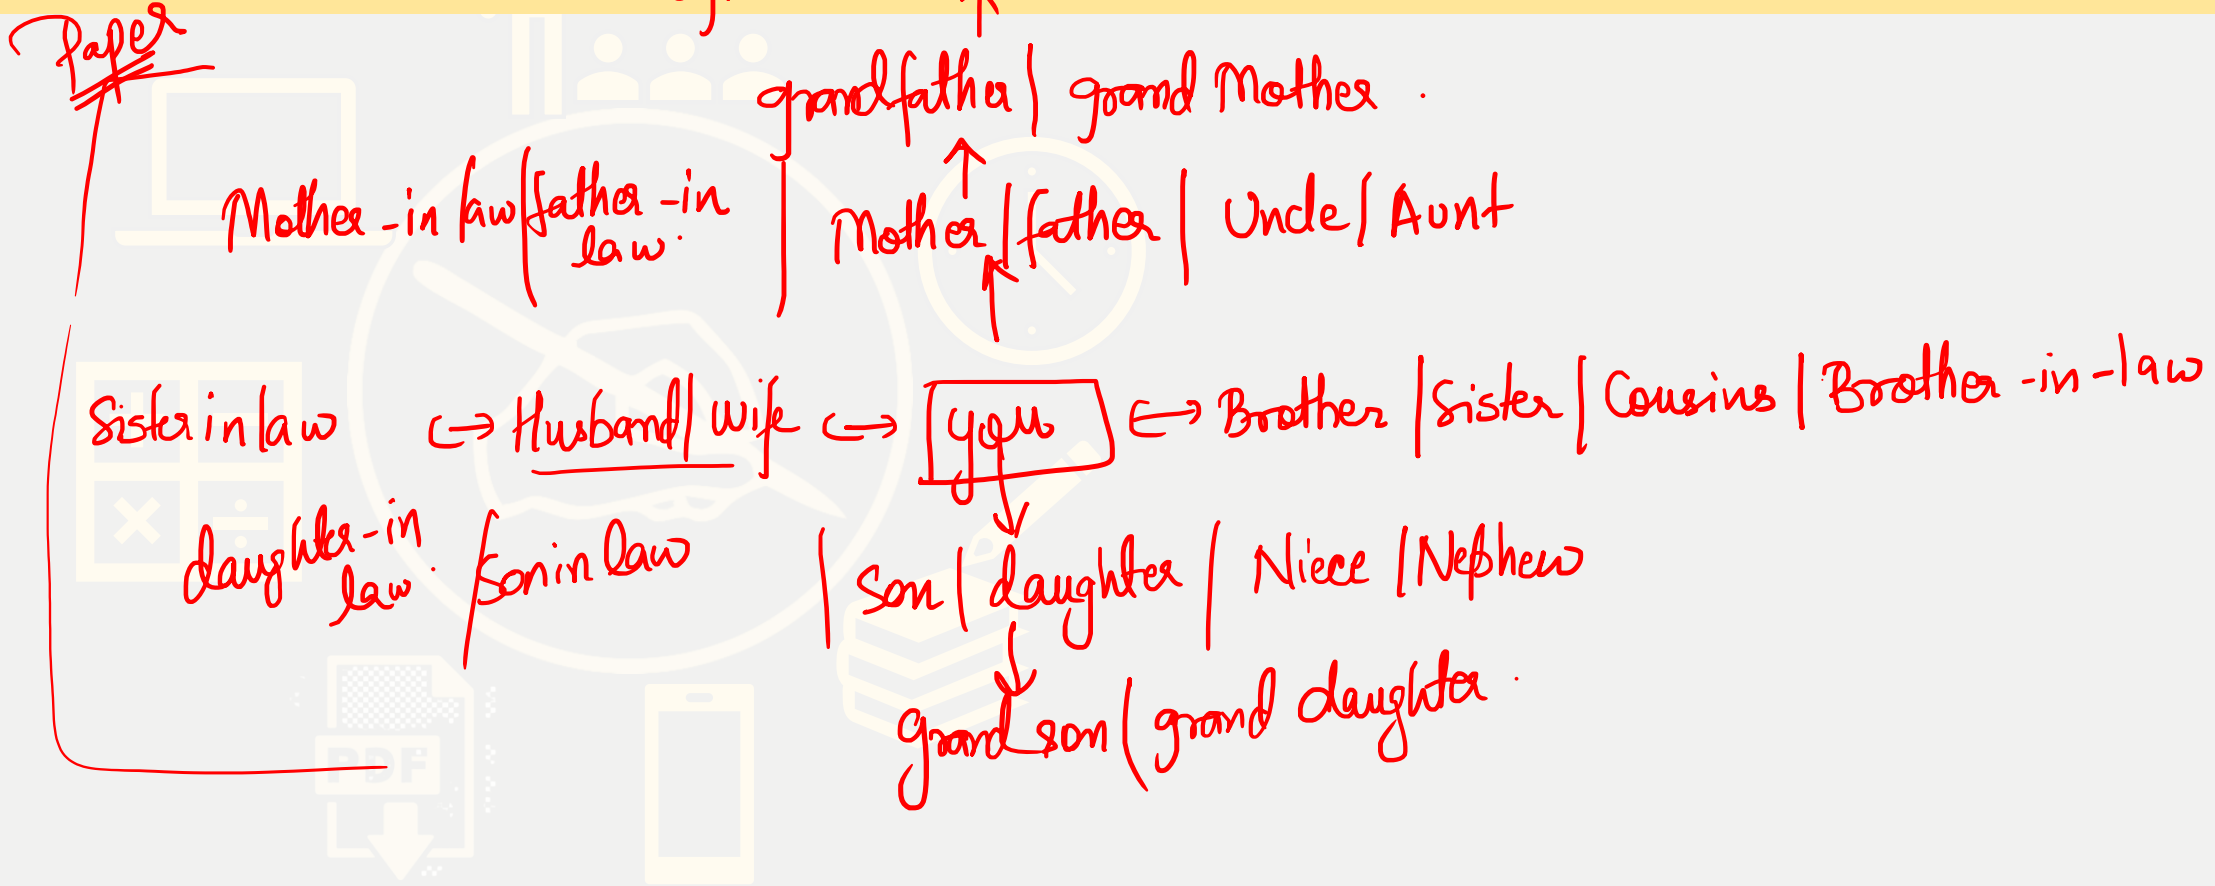 Paper
grandfather | grand Mother .
Mother-in law | father-in law. | Mother | father | Uncle | Aunt
Sister in law ↔ Husband | wife ↔ you ↔ Brother | Sister | Cousins | Brother-in-law
daughter-in law. / Son in law | son | daughter | Niece | Nephew
grand son | grand daughter .
PDF